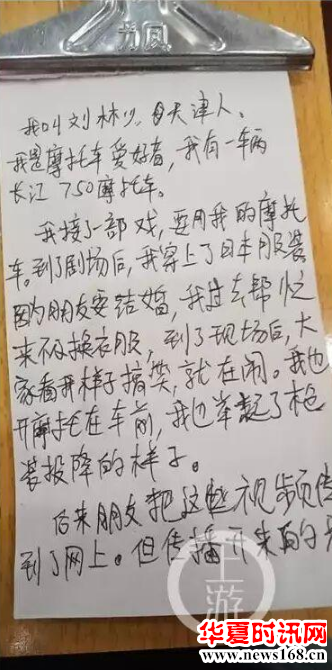 力风
我叫刘林, 天津人。
我是摩托车爱好者,我有一辆
长江750摩托车。
我接了一部戏,要用我的摩托
车。到了剧场后,我穿上了日本服装
因为朋友要结婚,我过去帮忙
来不及换衣服,到了现场后,大
家看我样子搞笑,就在闹。我也
开摩托在车前,我也举起了枪
装投降的样子。
后来朋友把这些视频传
到了网上。但传播开来的
上游
华夏时讯网
www.news168.cn